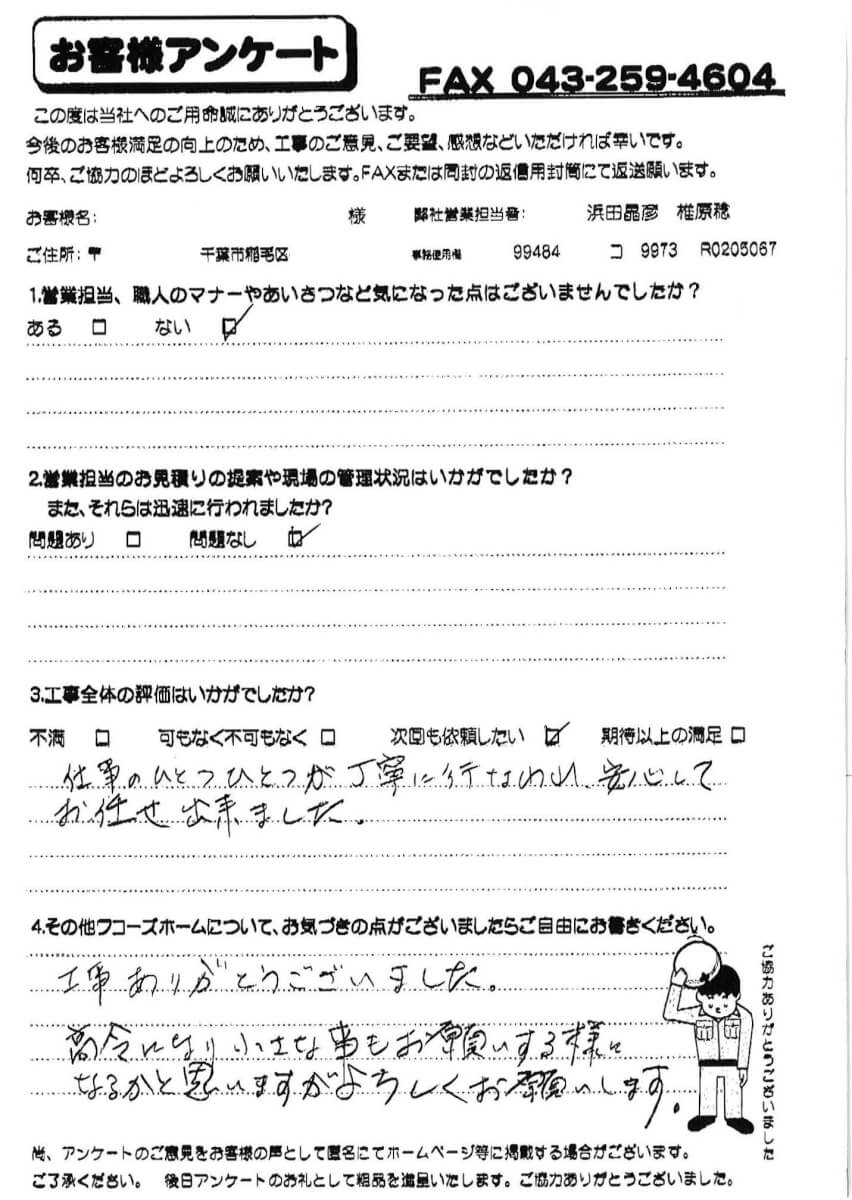 お客様アンケート
FAX 043-259-4604
この度は当社へのご用命誠にありがとうございます。
今後のお客様満足の向上のため、工事のご意見、ご要望、感想などいただければ幸いです。
何卒、ご協力のほどよろしくお願いいたします。FAXまたは同封の返信用封筒にて返送願います。
お客様名: 様 弊社営業担当者: 浜田晶彦 椎原稔
ご住所:〒 千葉市稲毛区 事務使用欄 99484 コ 9973 R0205067
1.営業担当、職人のマナーやあいさつなど気になった点はございませんでしたか?
ある □ ない ☑
2.営業担当のお見積りの提案や現場の管理状況はいかがでしたか?
また、それらは迅速に行われましたか?
問題あり □ 問題なし ☑
3.工事全体の評価はいかがでしたか?
不満 □ 可もなく不可もなく □ 次回も依頼したい ☑ 期待以上の満足 □
仕事のひとつひとつが丁寧に行なわれ、安心して
お任せ出来ました。
4.その他ワコーズホームについて、お気づきの点がございましたらご自由にお書きください。
工事ありがとうございました。
高令になり小さな事もお願いする様に
なるかと思いますがよろしくお願いします。
ご協力ありがとうございました
尚、アンケートのご意見をお客様の声として匿名にてホームページ等に掲載する場合がございます。
ご了承ください。 後日アンケートのお礼として粗品を進呈いたします。ご協力ありがとうございました。